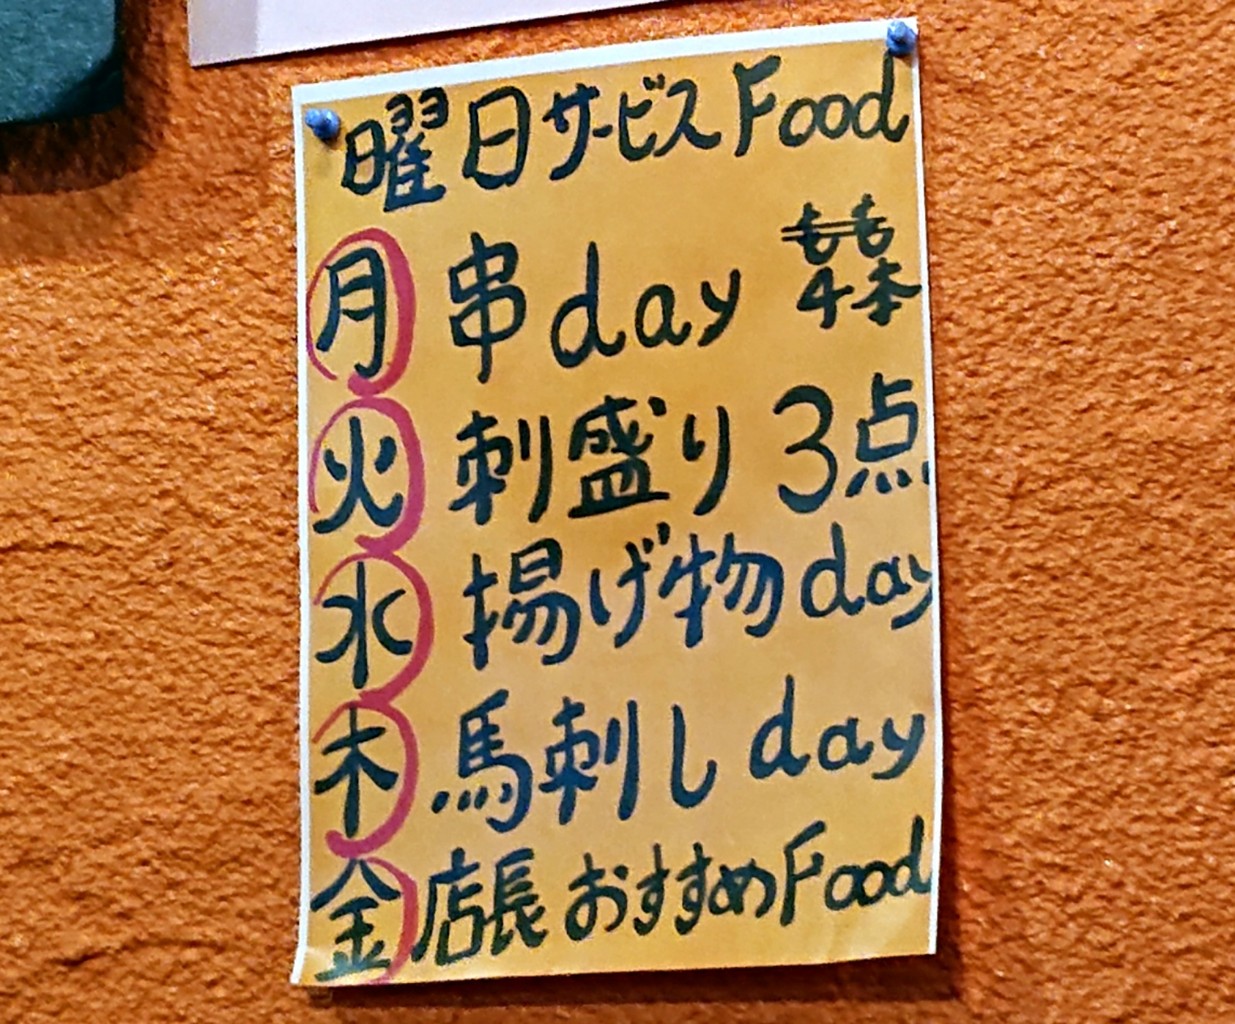 曜日サービスFood
月 串day もも
4本
火 刺盛り3点
水 揚げ物day
木 馬刺しday
金 店長おすすめFood